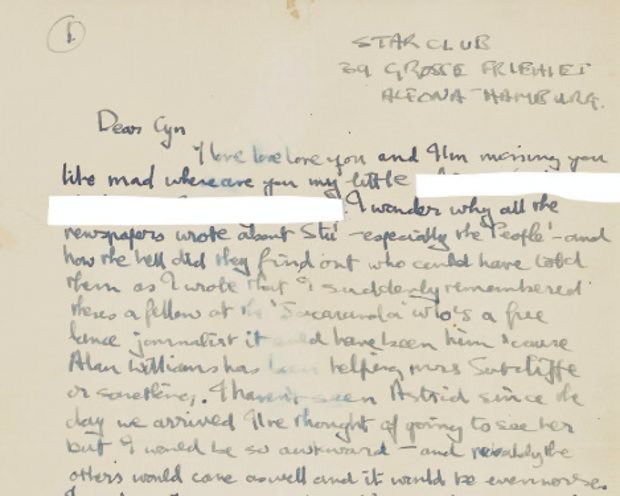 1.
STAR CLUB
39 GROSSE FRIEHIET
ALTONA HAMBURG.
Dear Cyn
I love love love you and I'm missing you
like mad where are you my little
I wonder why all the
newspapers wrote about Stu - especially the 'People' - and
how the hell did they find out who could have told
them as I wrote that I suddenly remembered
theres a fellow at the 'Jacaranda' who's a free
lance journalist it could have been him 'cause
Alan Williams has been helping mrs Sutcliffe
or something. I haven't seen Astrid since the
day we arrived I've thought of going to see her
but I would be so awkward - and probably the
others would come as well and it would be even worse.